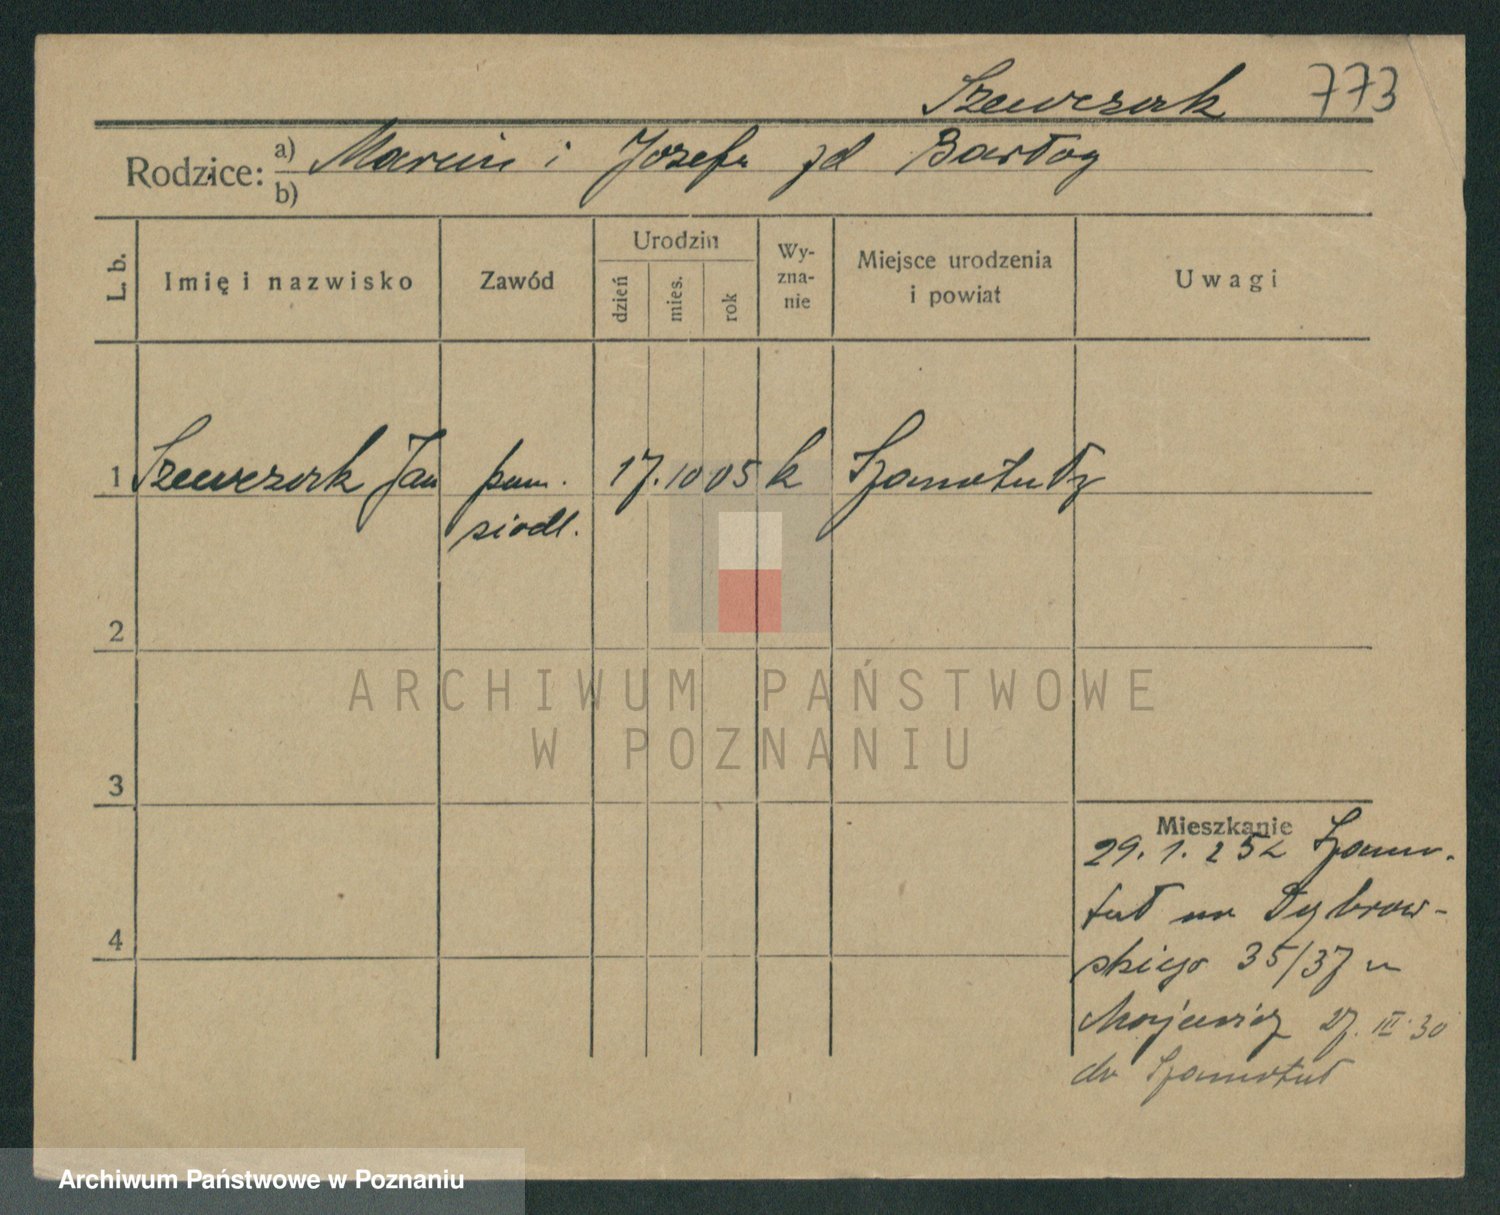 Szewczak 773
Rodzice: a) Marcin i Józefa zd Bartog
b)
L. b. Imię i nazwisko Zawód Urodzin dzień mies. rok Wyznanie Miejsce urodzenia i powiat Uwagi
1 Szewczak Jan pom. 17. 10 05 k Szamotuły
siodl.
2
ARCHIWUM PAŃSTWOWE
W POZNANIU
3
Mieszkanie
29. 1. 25 z Szamo-
tuł na Dąbrow-
4
skiego 35/37 u
27. III. 30
do Szamotuł
Archiwum Państwowe w Poznaniu